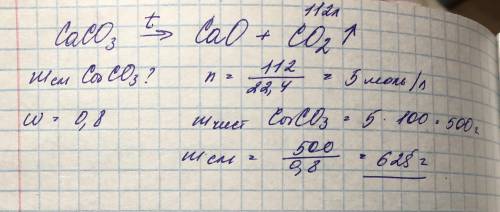 112л
CaCO₃ →ᵗ CaO + CO₂ ↑
m см CaCO₃? n = 112/22,4 = 5 моль/л
w = 0,8 m чист CaCO₃ = 5 · 100 = 500г
m см = 500/0,8 = 625г